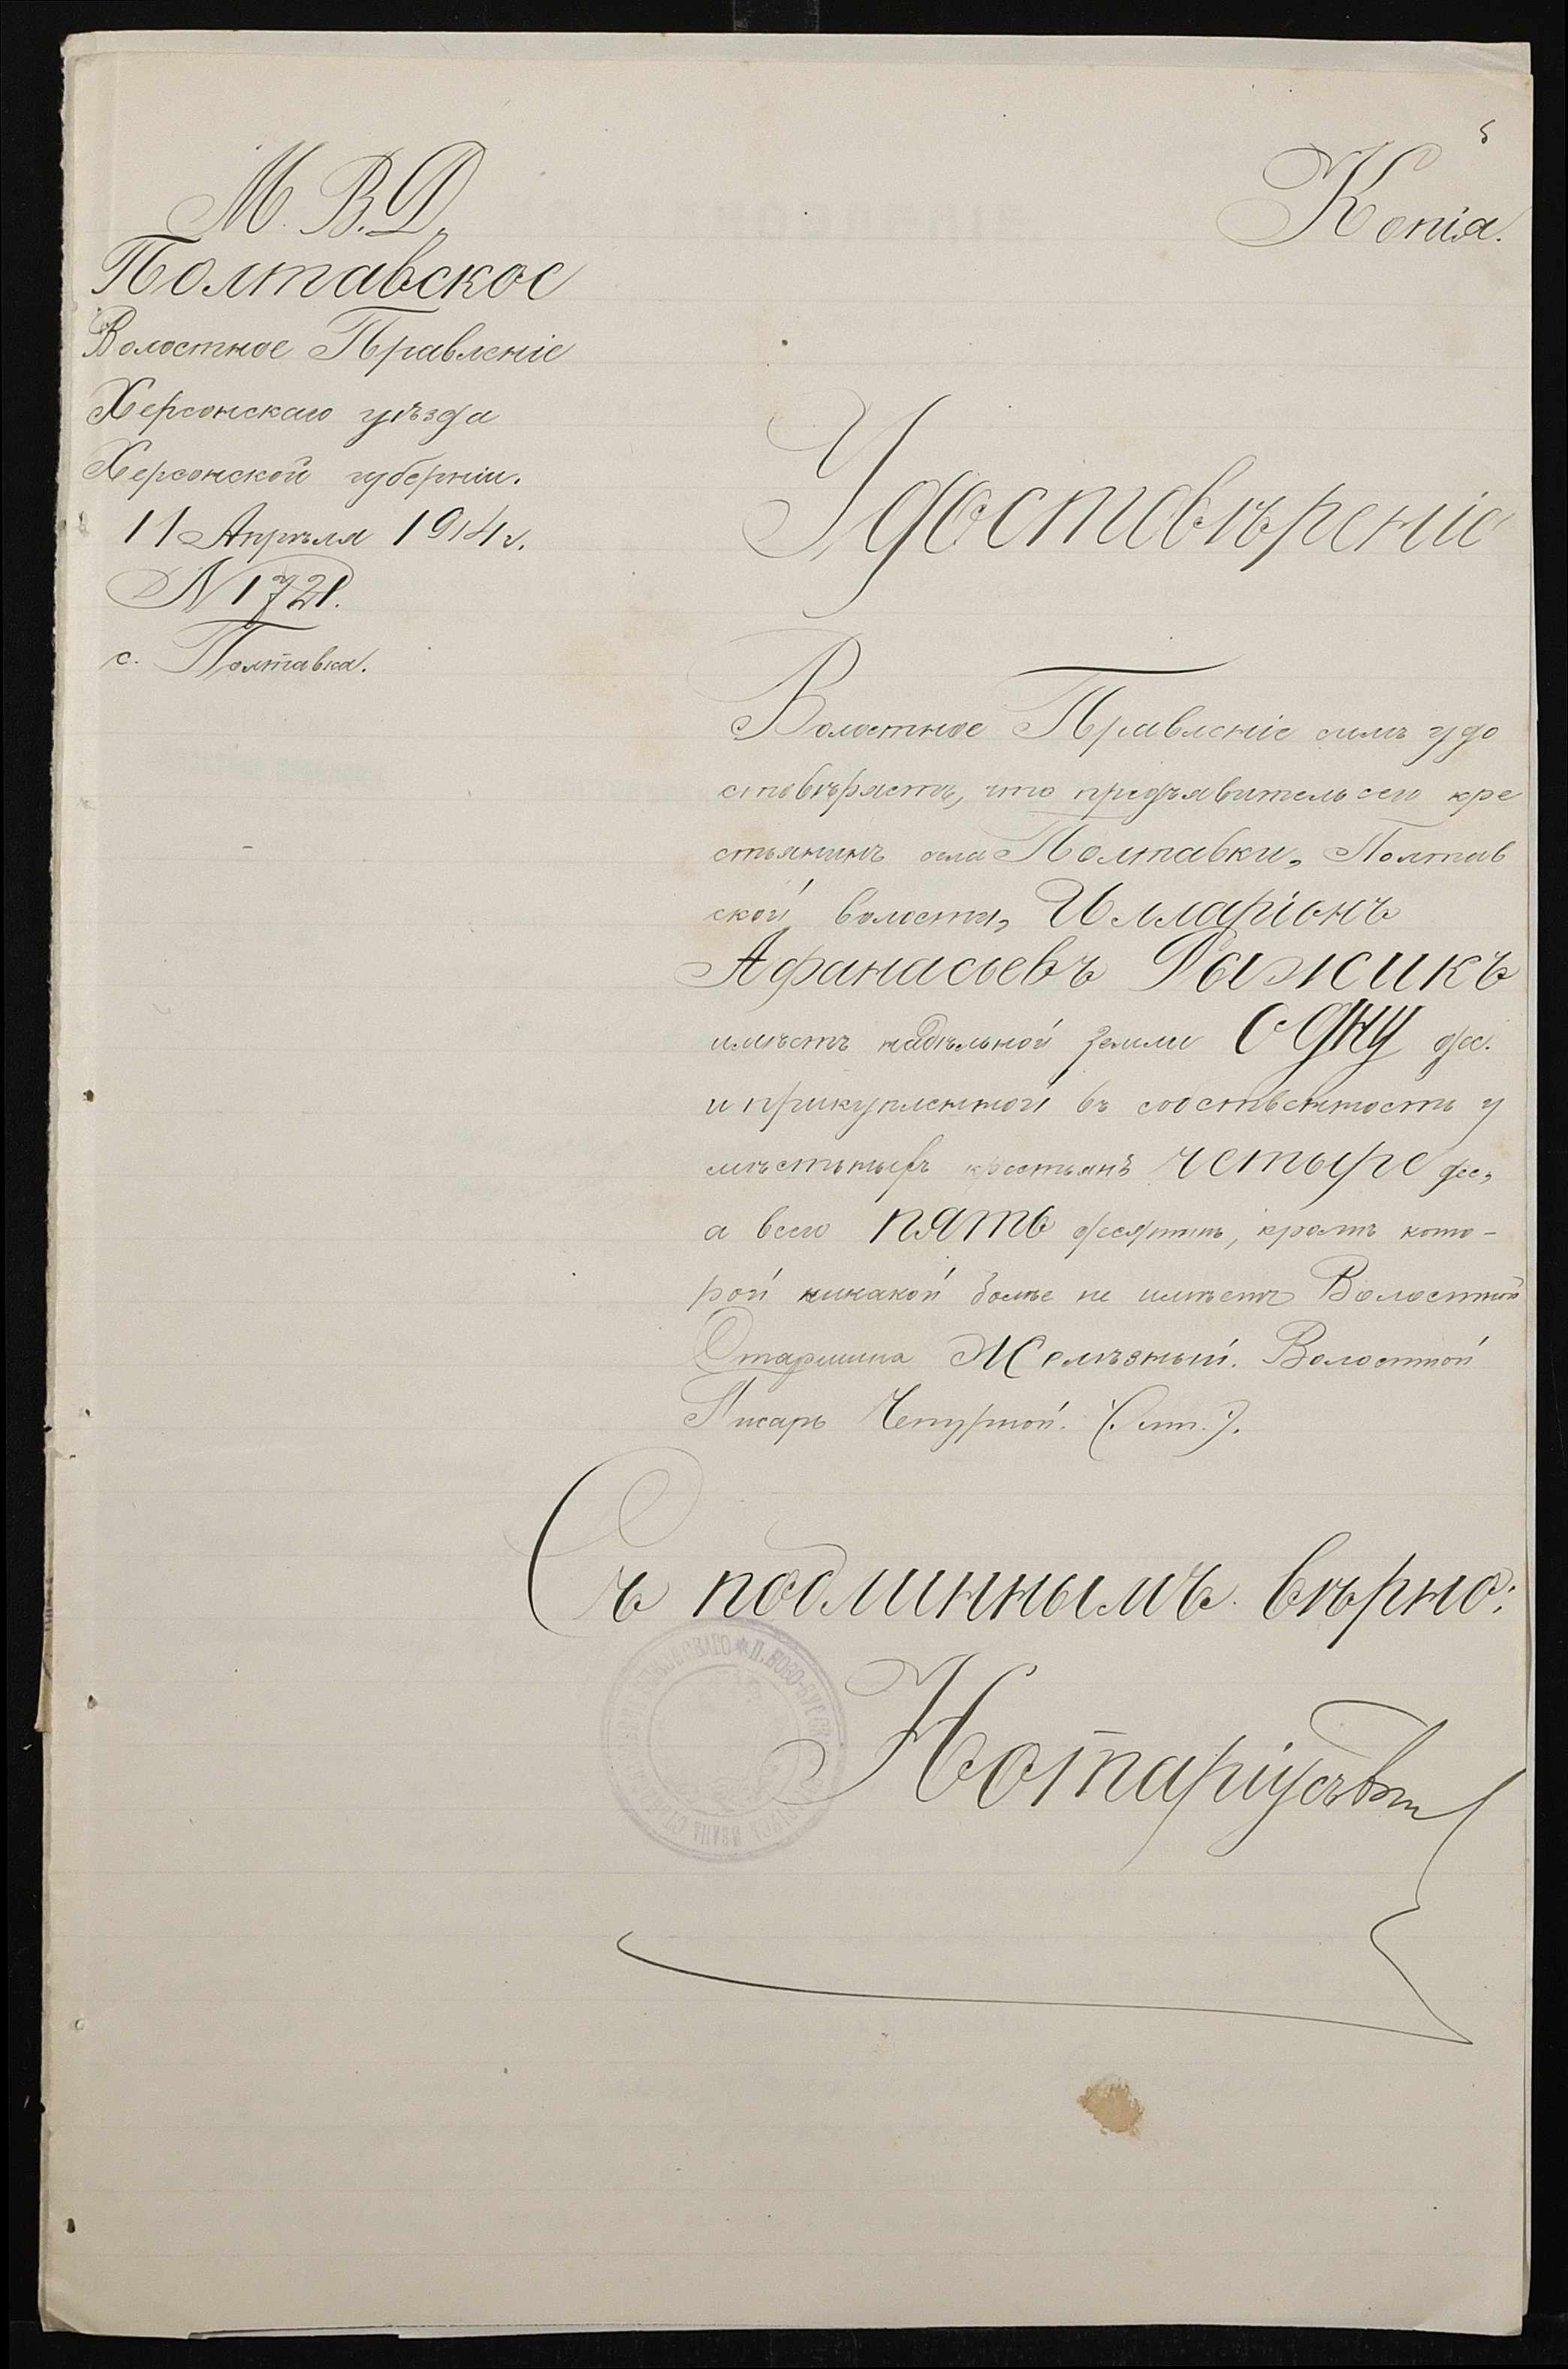 5
Копія.
М. В. Д.
Полтавское
Волостное Правленіе
Херсонскаго уѣзда
Херсонской губерніи.
11 Апрѣля 1914 г.
N 1721.
с. Полтавка.
Удостовѣреніе
Волостное Правленіе симъ удо
стовѣряетъ, что предъявитель сего кре
стьянинъ села Полтавки, Полтав
ской волости, Илларіонъ
Афанасьевъ Рыжикъ
имѣетъ надѣльной земли одну дес.
и прикупленной въ собственность у
мѣстныхъ крестьянъ четыре дес,
а всего пять десятинъ, кромѣ кото-
рой никакой болѣе не имѣетъ Волостной
Старшина Желѣзный. Волостной
Писарь Чепурной. (: мп. :).
Съ подлиннымъ вѣрно:
Нотаріусъ